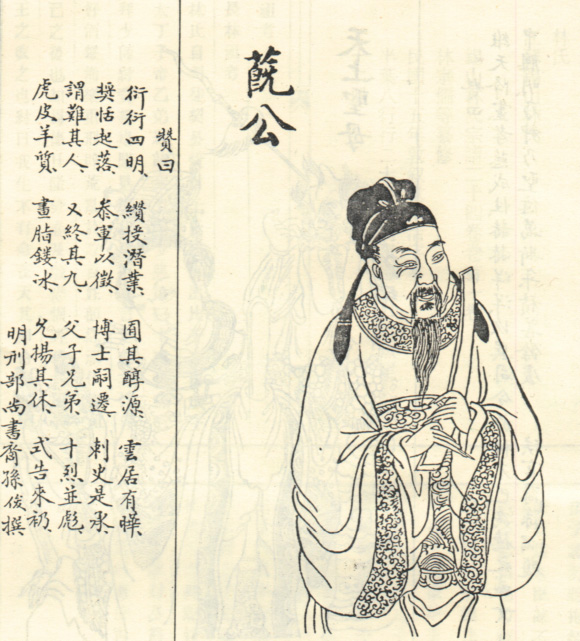 蔇公
贊曰
衍衍四明、纘授潛業、固其醇源、雲居有曄、
獎恬起落、叅軍以徵、博士嗣遷、刺史是承、
謂難其人、又終其九、父子兄弟、十烈並彪、
虎皮羊質、畫脂鏤冰、允揚其休、式告來礽、
明刑部尚書裔孫俊撰